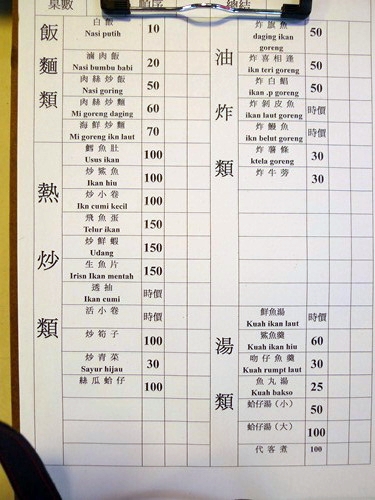 桌數 順序 總結
飯麵類
白飯
Nasi putih 10
滷肉飯
Nasi bumbu babi 20
肉絲炒飯
Nasi goring 50
肉絲炒麵
Mi goreng daging 60
海鮮炒麵
Mi goreng ikn laut 70
熱炒類
鱈魚肚
Usus ikan 100
炒鯊魚
Ikan hiu 100
炒小卷
Ikn cumi kecil 100
飛魚蛋
Telur ikan 150
炒鮮蝦
Udang 150
生魚片
Irisn Ikan mentah 150
透抽
Ikan cumi 時價
活小卷 時價
炒筍子 100
炒青菜
Sayur hijau 30
絲瓜蛤仔 100
油炸類
炸旗魚
daging ikan
goreng 50
炸喜相逢
ikn teri goreng 50
炸白鯧
ikan .p goreng 50
炸剝皮魚
ikan laut goreng 時價
炸鰻魚
ikn belut goreng 時價
炸薯條
ktela goreng 30
炸牛蒡 30
湯類
鮮魚湯
Kuah ikan laut 時價
鯊魚羹
Kuah ikan hiu 60
吻仔魚羹
Kuah rumpt laut 30
魚丸湯
Kuah bakso 25
蛤仔湯(小) 50
蛤仔湯(大) 100
代客煮 100